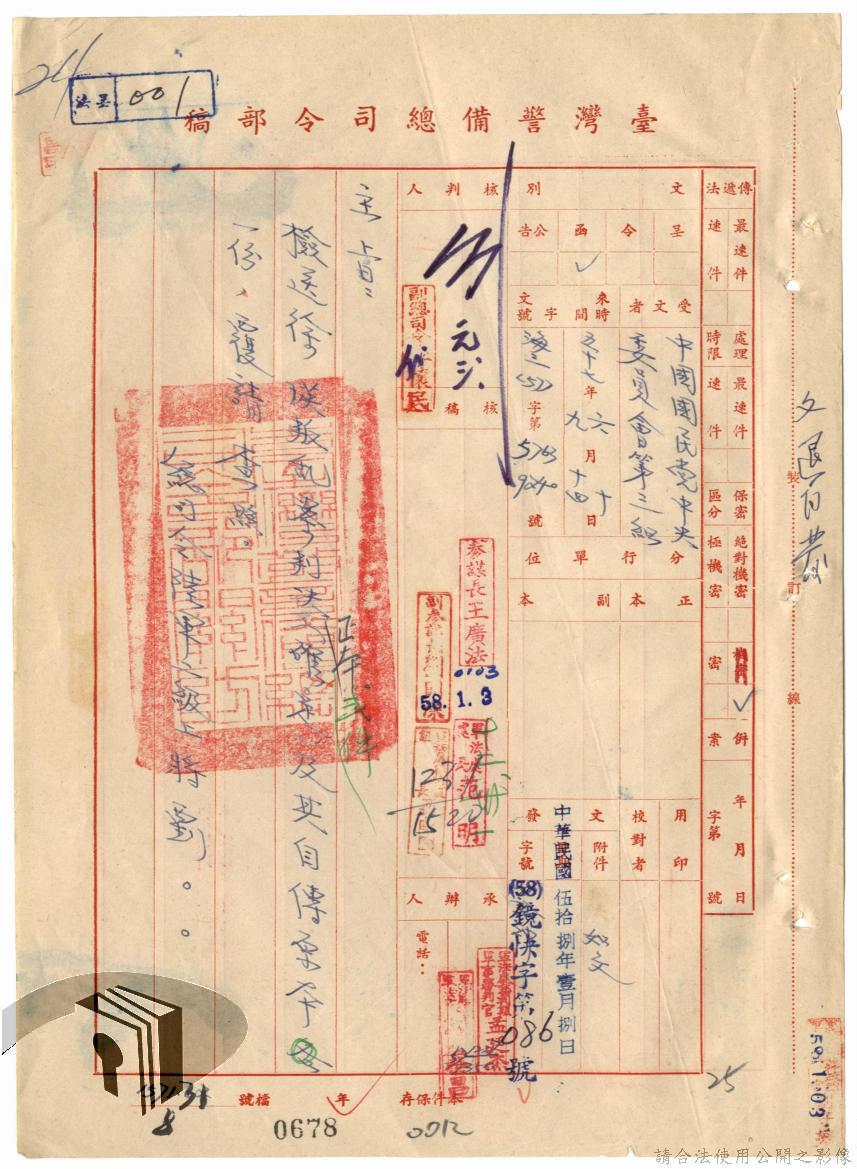 臺灣警備總司令部稿
法呈 001
傳遞法
最速件
速件
處理時限
最速件
速件
保密區分
絕對機密
極機密
機密
密
併案
年月日
字第 號
文別
呈
令
函 ✓
公告
受文者
中國國民黨中央
委員會第三組
來文時間
五十七年 六月 十日
九 十四
字號
海三(57)字第 5763 9240 號
分行單位
正本
副本
用印
校對者
附件
如文
發文
字號
中華民國伍拾捌年壹月捌日
(58)鏡快字第086號
核判人
副總司令
元 代
核稿
參謀長王廣法
0103
58.1.3
軍法處
范明
承辦人
電話：
主旨：
檢送徐 成叛亂案判決
正本貳件
及其自傳
一份，復請查照。
總司令陸軍二級上將劉○○
文退自裝
裝
訂
線
25
58.1.03
本件保存 年
檔號
1571 31
8
0678
0012
請合法使用公開之影像